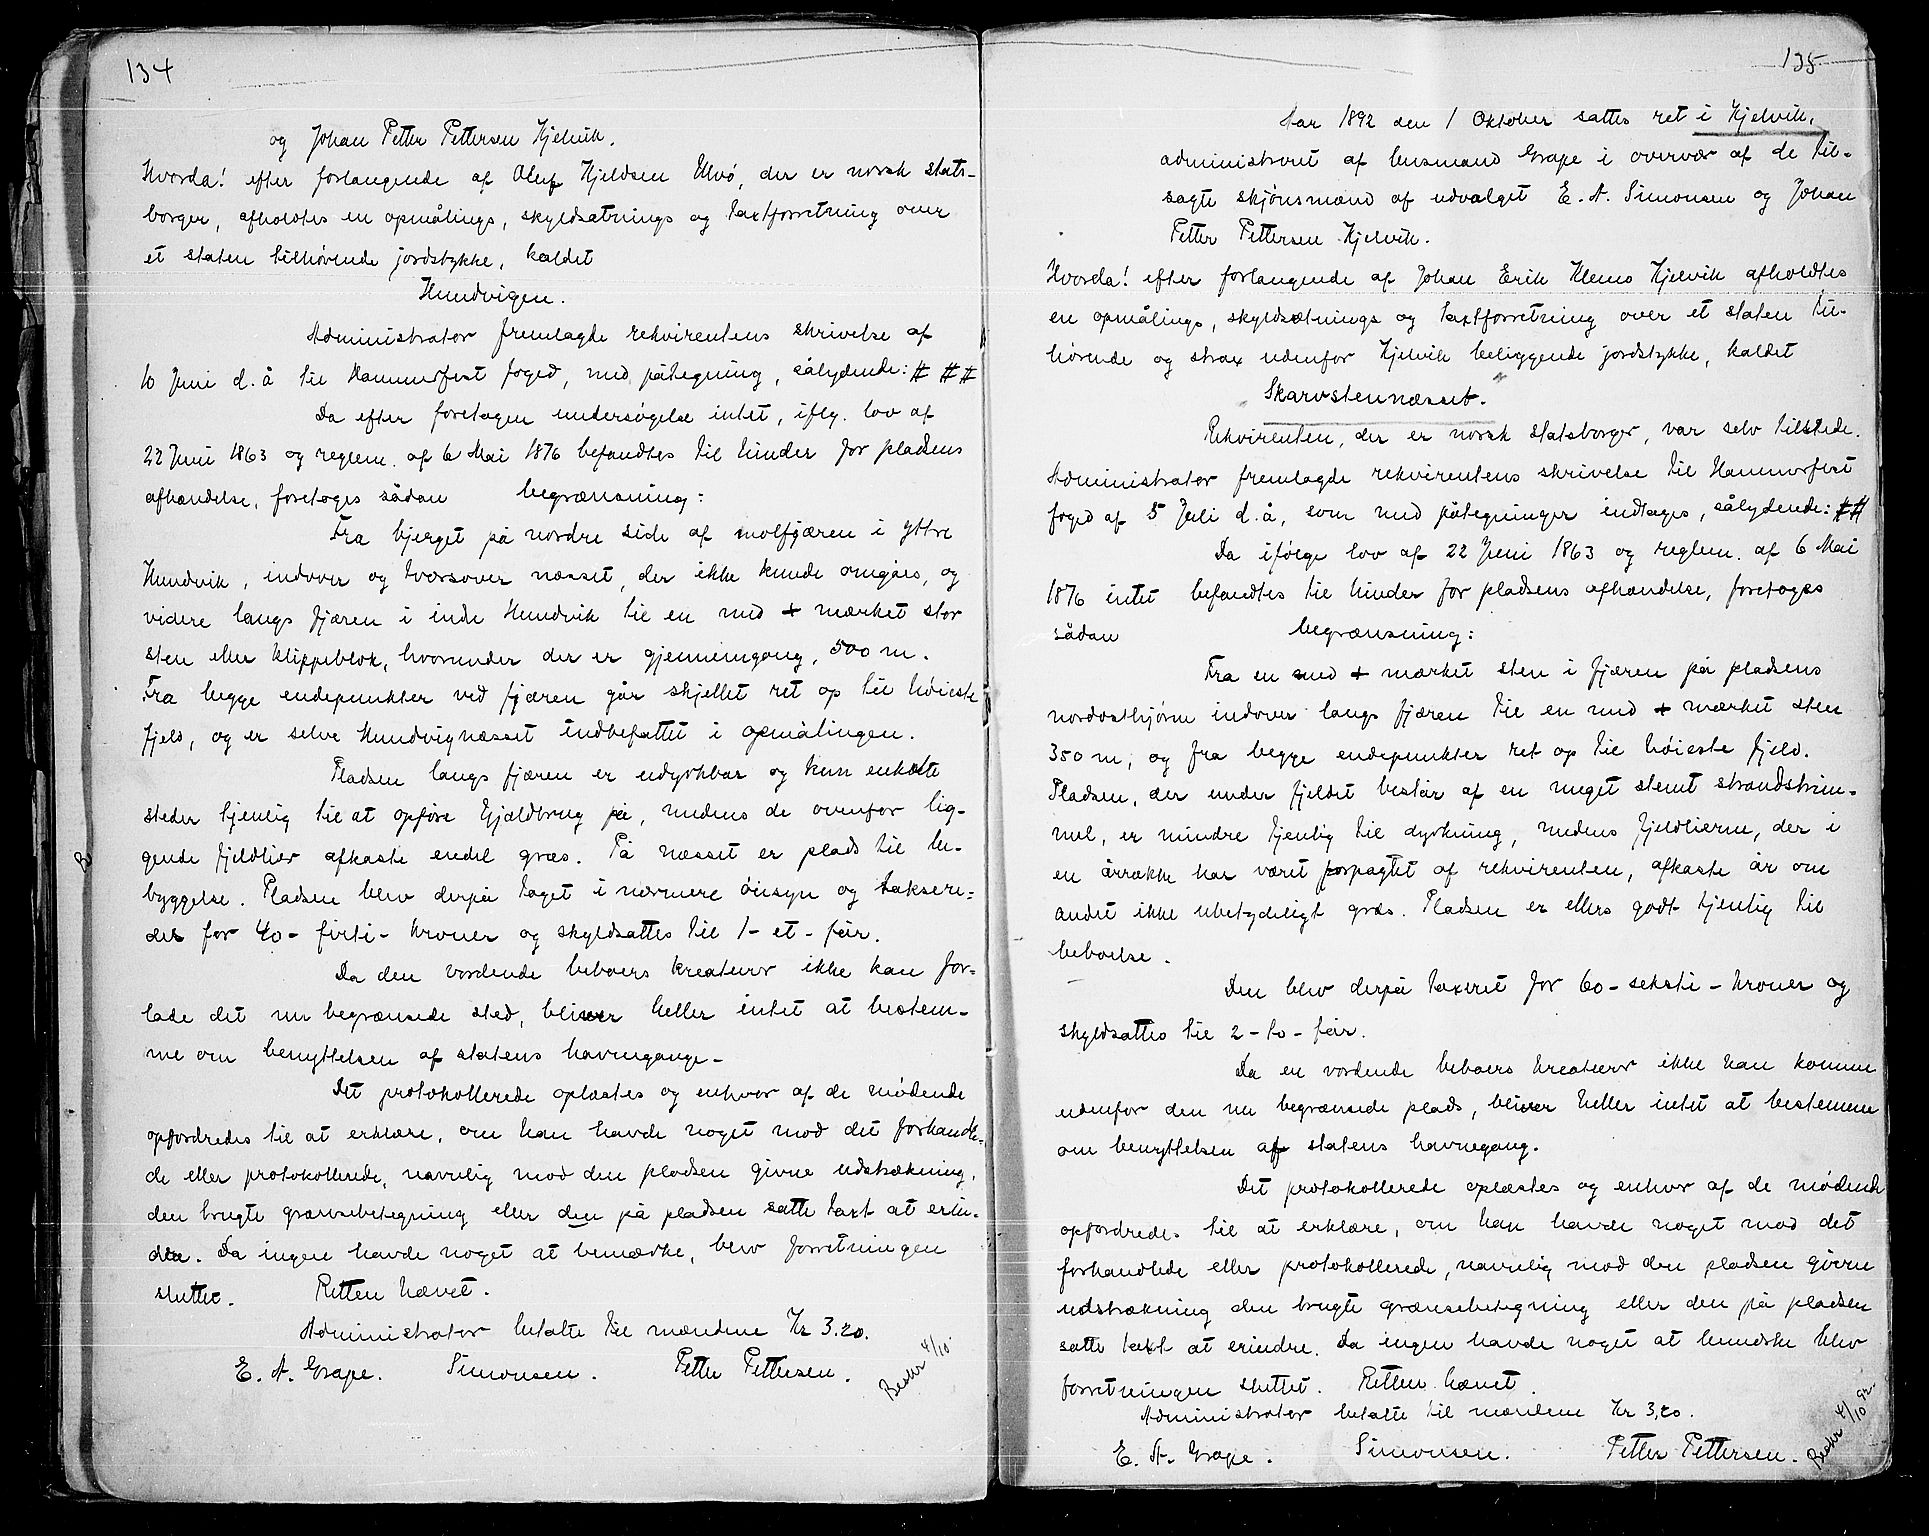 134
og Johan Petter Pettersen Kjelvik.
Hvorda! efter forlangende af Oluf Kjeldsen, der er norsk stats-
borger, afholdtes en opmålings, skyldsætnings og taxtforretning over
et staten tilhørende jordstykke, kaldet
Hundvigen.
Administrator fremlagde rekvirentens skrivelse af
10 Juni d.å til Hammerfest foged, med påtegning, sålydende: # # #
Da efter foretagen undersøgelse intet, iflg. lov af
22 Juni 1863 og reglem. af 6 Mai 1876 befandtes til hinder for pladsens
afhændelse, foretoges sådan begrænsning:
Fra bjerget på nordre side af molfjæren i yttre
Hundvik, indover og tversover næsset, der ikke kunde omgåes, og
videre langs fjæren i indre Hundvik til en med + mærket stor
sten eller klippeblok, hvorunder der er gjennemgang, 500 m.
Fra begge endepunkter ved fjæren går skjellet ret op til høieste
fjeld, og er selve Hundvignæsset indbefattet i opmålingen.
Pladsen langs fjæren er udyrkbar og kun enkelte
steder tjenlig til at opføre gjældbrug på, medens de ovenfor lig-
gende fjeldlier afkaste endel græs. På næsset er plads til be-
byggelse. Pladsen blev derpå taget i nærmere øiesyn og taksere-
det for 40 - firti - kroner og skyldsattes til 1 - et - øre.
Da den vordende beboers kreaturer ikke kan for-
lade det nu begrænsede sted, bliver heller intet at bestem-
me om benyttelsen af statens havnegange -
Det protokollerede oplæstes og enhver af de mødende
opfordredes til at erklære, om han havde noget mod det forhandle-
de eller protokollerede, navnlig mod den pladsen givne udstrækning,
den brugte grænsebetegning eller den på pladsen satte taxt at erin-
dre. Da ingen havde noget at bemærke, blev forretningen
sluttet. Retten hævet.
Administrator betalte til mændene Kr 3.20.
E. A. Grape. Simonsen. Petter Pettersen.
Beskr 4/10
135
Aar 1892 den 1 Oktober sattes ret i Kjelvik,
administreret af lensmand Grape i overvær af de til-
sagte skjønsmænd af udvalget E. A. Simonsen og Johan
Petter Pettersen Kjelvik.
Hvorda! efter forlangende af Johan Erik Klemo Kjelvik afholdtes
en opmålings, skyldsætnings og taxtforretning over et staten til-
hørende og strax udenfor Kjelvik beliggende jordstykke, kaldet
Skarvstennæsset.
Rekvirenten, der er norsk statsborger, var selv tilstede.
Administrator fremlagde rekvirentens skrivelse til Hammerfest
foged af 5 Juli d.å, som med påtegninger indtages, sålydende: # #
Da ifølge lov af 22 Juni 1863 og reglem. af 6 Mai
1876 intet befandtes til hinder for pladsens afhændelse, foretoges
sådan begrænsning:
Fra en med + mærket sten i fjæren på pladsens
nordosthjørne indover langs fjæren til en med + mærket sten
350 m, og fra begge endepunkter ret op til høieste fjeld.
Pladsen, der under fjeldet består af en meget stenet strandstrim-
mel, er mindre tjenlig til dyrkning, medens fjeldlierne, der i
en årrække har været forpagtet af rekvirenten, afkaste år om
andet ikke ubetydeligt græs. Pladsen er ellers godt tjenlig til
beboelse.
Den blev derpå taxeret for 60 - seksti - kroner og
skyldsattes til 2 - to - øre.
Da en vordende beboers kreaturer ikke kan komme
udenfor den nu begrænsede plads, bliver heller intet at bestemme
om benyttelsen af statens havnegang.
Det protokollerede oplæstes og enhver af de mødende
opfordredes til at erklære, om han havde noget mod det
forhandlede eller protokollerede, navnlig mod den pladsen givne
udstrækning den brugte grænsebetegning eller den på pladsen
satte taxt at erindre. Da ingen havde noget at bemærke blev
forretningen sluttet. Retten hævet.
Administrator betalte til mændene Kr 3,20.
E. A. Grape. Simonsen. Petter Pettersen.
Beskr 4/10 92.